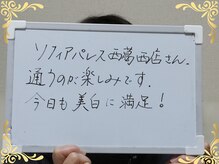 ソフィアパレス西葛西店さん、
通うのが楽しみです。
今日も美白に満足！